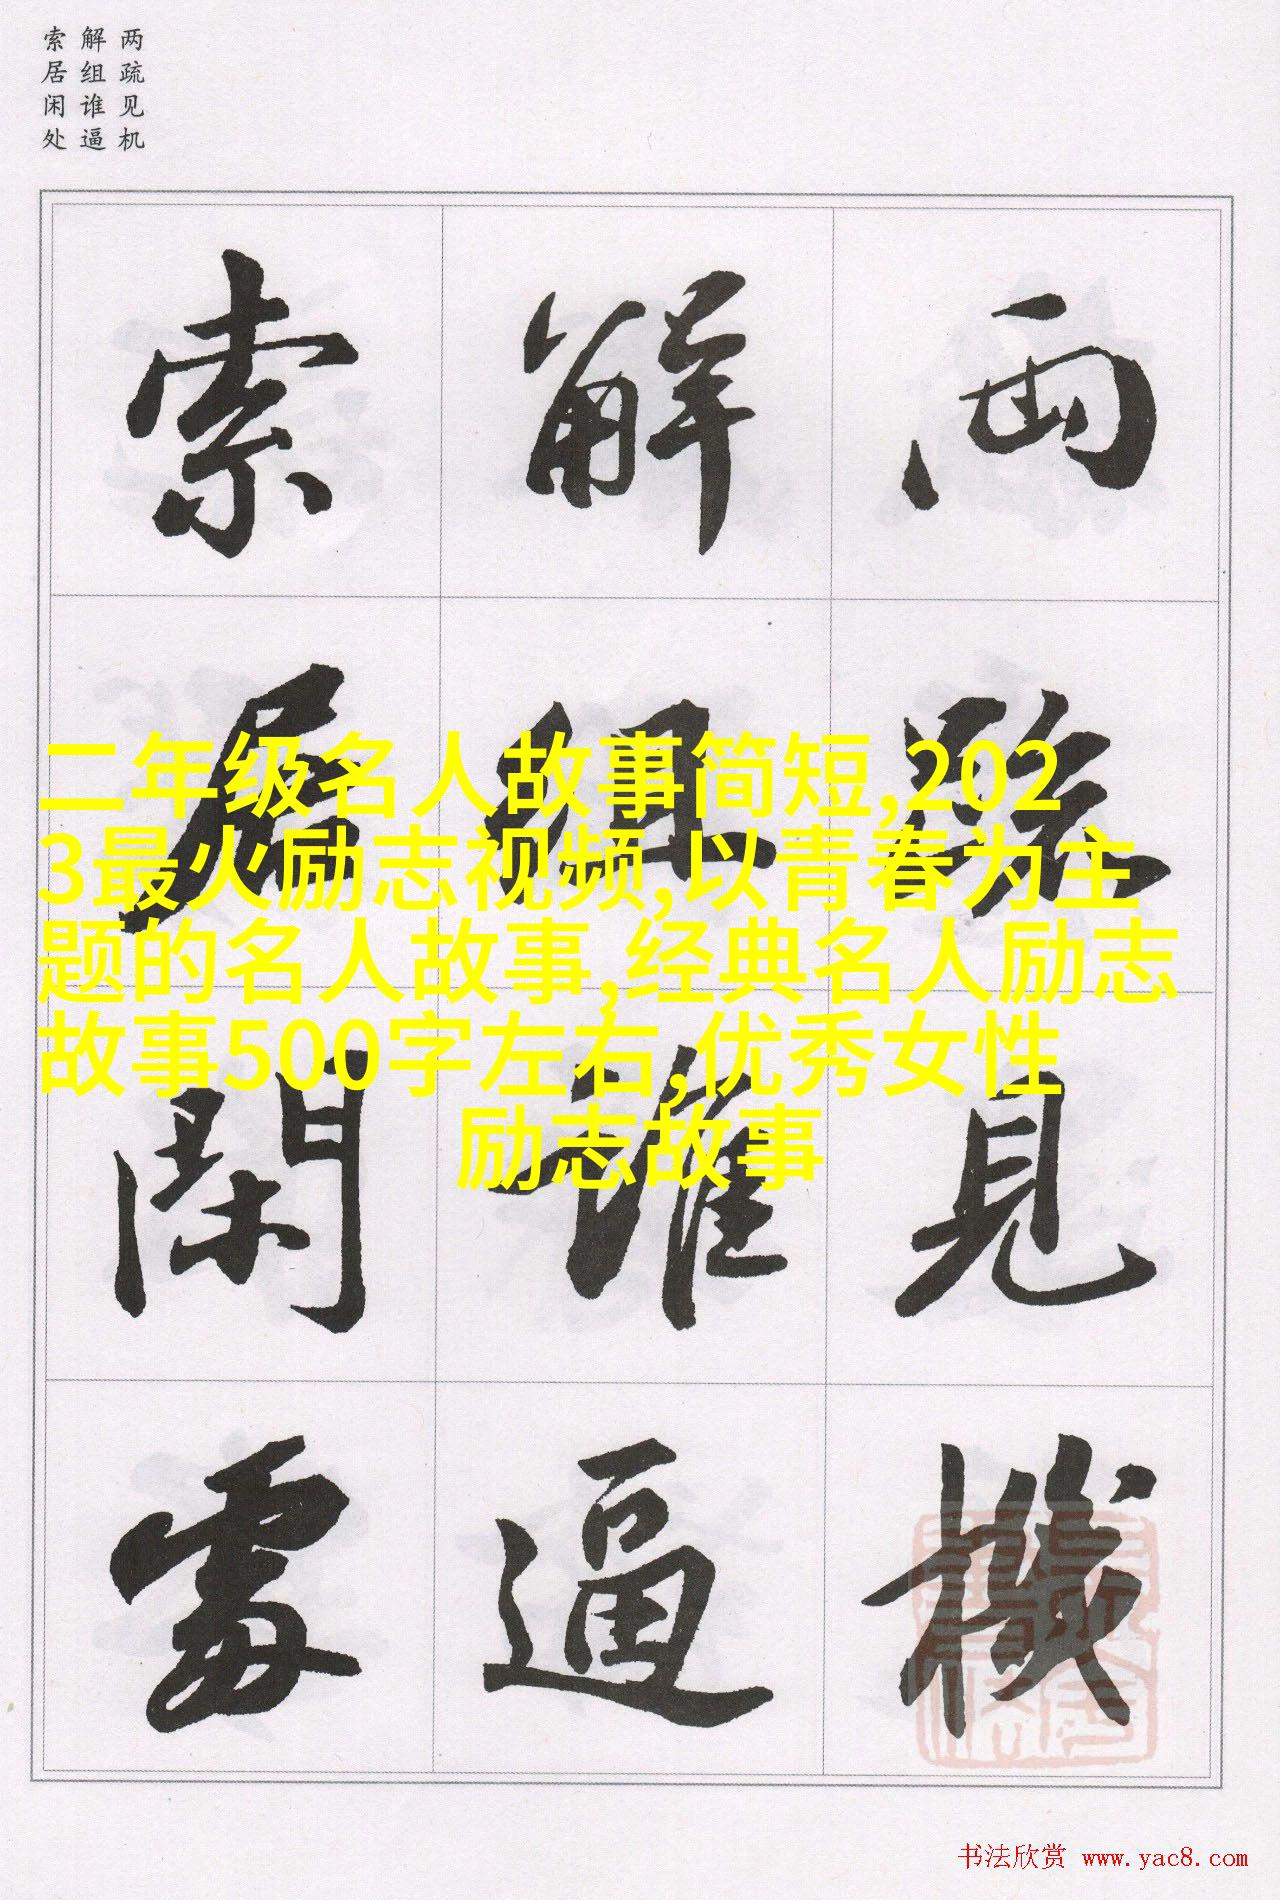 两疏见机
解组谁逼
索居闲处
两疏見機
解组誰逼
索居閑處
二年级名人故事简短,202
3最火励志视频,以青春为主
题的名人故事,经典名人励志
故事500字左右,优秀女性
励志故事
书法欣赏 www.yac8.com